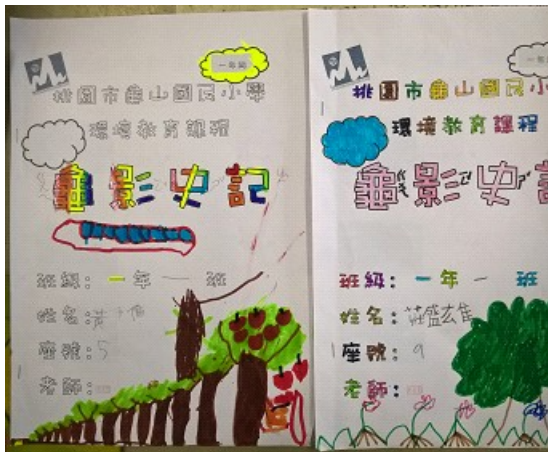 一年級
桃園市龜山國民小學
環境教育課程
龜影史記
班級：一年一班
姓名：
座號：5
老師：
一年
桃園市龜山國民小
環境教育課程
龜影史記
班級：一年一班
姓名：莊盛玄
座號：9
老師：